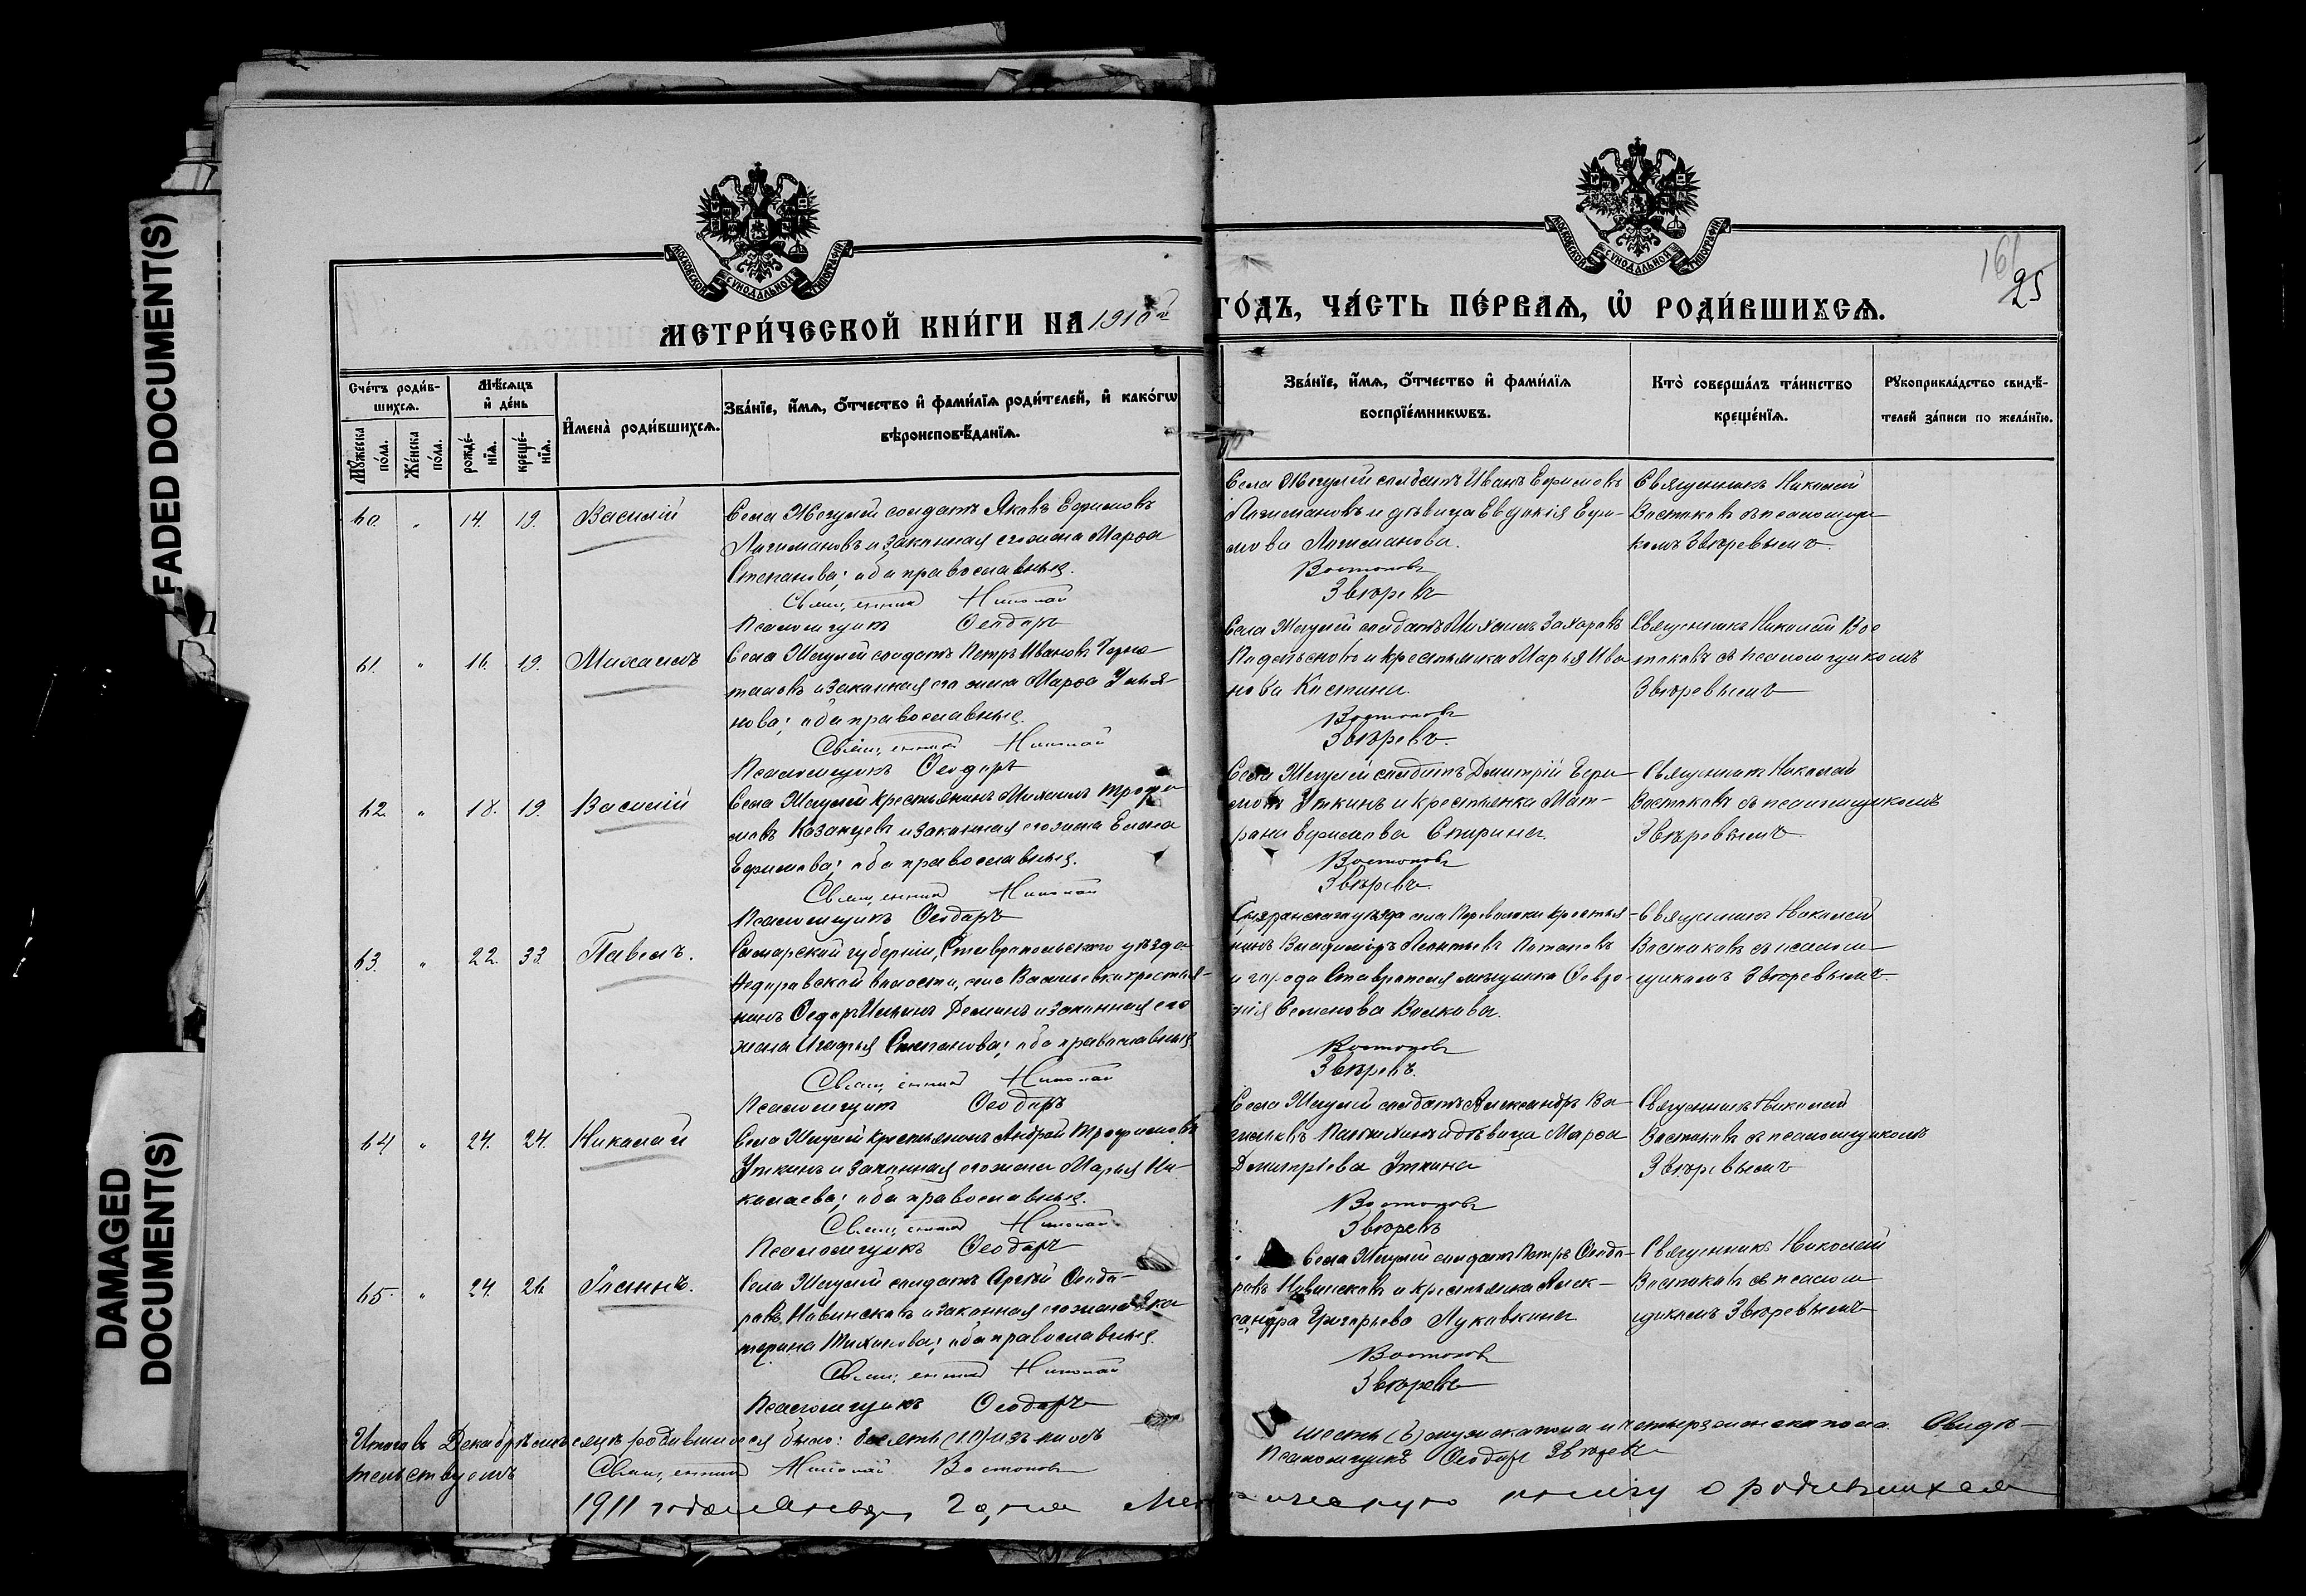 FADED DOCUMENT(S)
DAMAGED
DOCUMENT(S)
МОСКОВСКОЙ СѴНОДАЛЬНОЙ ТИПОГРАФІИ
МОСКОВСКОЙ СѴНОДАЛЬНОЙ ТИПОГРАФІИ
25
МЕТРИ́ЧЕСКОЙ КНИ́ГИ НА 1910 й
ГО́ДЪ, ЧА́СТЬ ПЕ́РВАѦ, Ѡ҆ РОДИ́ВШИХСѦ.
Сче́тъ роди́в-
шихсѧ.
Мѣ́сѧцъ
и҆ де́нь
Мꙋ́жеска
по́ла.
Же́нска
по́ла.
рожде́-
нїѧ.
креще́-
нїѧ.
И҆мена̀ роди́вшихсѧ.
Зва́нїе, и҆́мѧ, ѻ҆́тчество и҆ фами́лїѧ роди́телей, и҆ како́гѡ
вѣроисповѣ́данїѧ.
Зва́нїе, и҆́мѧ, ѻ҆́тчество и҆ фами́лїѧ
воспрїе́мникѡвъ.
Кто̀ соверша́лъ та́инство
креще́нїѧ.
Рꙋкоприкла́дство свидѣ́-
телей за́писи по жела́нїю.
60. " 14. 19. Василій
Села Жегулей солдатъ Яковъ Ефимовъ
и законная его жена Марѳа
Степанова; оба православные.
Священникъ Николай
Псаломщикъ Ѳеодоръ
Села Жегулей солдатъ Иванъ Ефимовъ
и дѣвица Евдокія Ефи-
мова
Востоковъ
Звѣревъ
Священникъ Николай
Востоковъ съ псаломщи-
комъ Звѣревымъ.
61. " 16. 19. Михаилъ
Села Жегулей солдатъ Петръ Ивановъ
и законная его жена Марѳа Улья-
нова; оба православные.
Священникъ Николай
Псаломщикъ Ѳеодоръ
Села Жегулей солдатъ Михаилъ Захаровъ
и крестьянка Марья Ива-
нова Костина.
Востоковъ
Звѣревъ.
Священникъ Николай Вос
токовъ съ псаломщикомъ
Звѣревымъ
62. " 18. 19. Василій
Села Жегулей крестьянинъ Михаилъ Трофи
мовъ Казанцевъ и законная его жена Елена
Ефимова; оба православные.
Священникъ Николай
Псаломщикъ Ѳеодоръ
Села Жегулей солдатъ Димитрій Ефи-
мовъ Уткинъ и крестьянка Мат-
рона Ефимова Спирина.
Востоковъ
Звѣревъ.
Священникъ Николай
Востоковъ съ псаломщикомъ
Звѣревымъ.
63. " 22. 23. Павелъ.
Самарской губерніи, Ставропольскаго уѣзда
Ѳедоровской волости, села Васильевки крестья-
нинъ Ѳедоръ Ильинъ Деминъ и законная его
жена Агафья Степанова; оба православные
Священникъ Николай
Псаломщикъ Ѳеодоръ
Сызранскаго уѣзда села Переволоки крестья-
нинъ Владиміръ Леонтьевъ Потаповъ
и города Ставрополя мѣщанка Ѳевро-
нія Семенова Волкова.
Востоковъ
Звѣревъ.
Священникъ Николай
Востоковъ съ псалом-
щикомъ Звѣревымъ.
64 " 24. 24. Николай
Села Жегулей крестьянинъ Андрей Трофимовъ
Уткинъ и законная его жена Марья Ни-
колаева; оба православные.
Священникъ Николай
Псаломщикъ Ѳеодоръ
Села Жегулей солдатъ Александръ Ва-
сильевъ и дѣвица Марѳа
Димитріева Уткина
Востоковъ
Звѣревъ
Священникъ Николай
Востоковъ съ псаломщикомъ
Звѣревымъ
65. " 24. 26. Іоаннъ.
Села Жегулей солдатъ Ѳеодо-
ровъ и законная его жена Ека
терина оба православные.
Священникъ Николай
Псаломщикъ Ѳеодоръ
Села Жегулей солдатъ Петръ Ѳеодо-
ровъ и крестьянка Алек-
сандра Григорьева Луковкина
Востоковъ
Звѣревъ
Священникъ Николай
Востоковъ съ псалом
щикомъ Звѣревымъ
Итого въ Декабрѣ мѣсяцѣ родившихся было: десять (10) изъ нихъ шесть (6) мужска пола и четыре женска пола. Свидѣ-
тельствуютъ Священникъ Николай Востоковъ Псаломщикъ Ѳеодоръ Звѣревъ
1911 года Января 2 дня книгу о родившихся